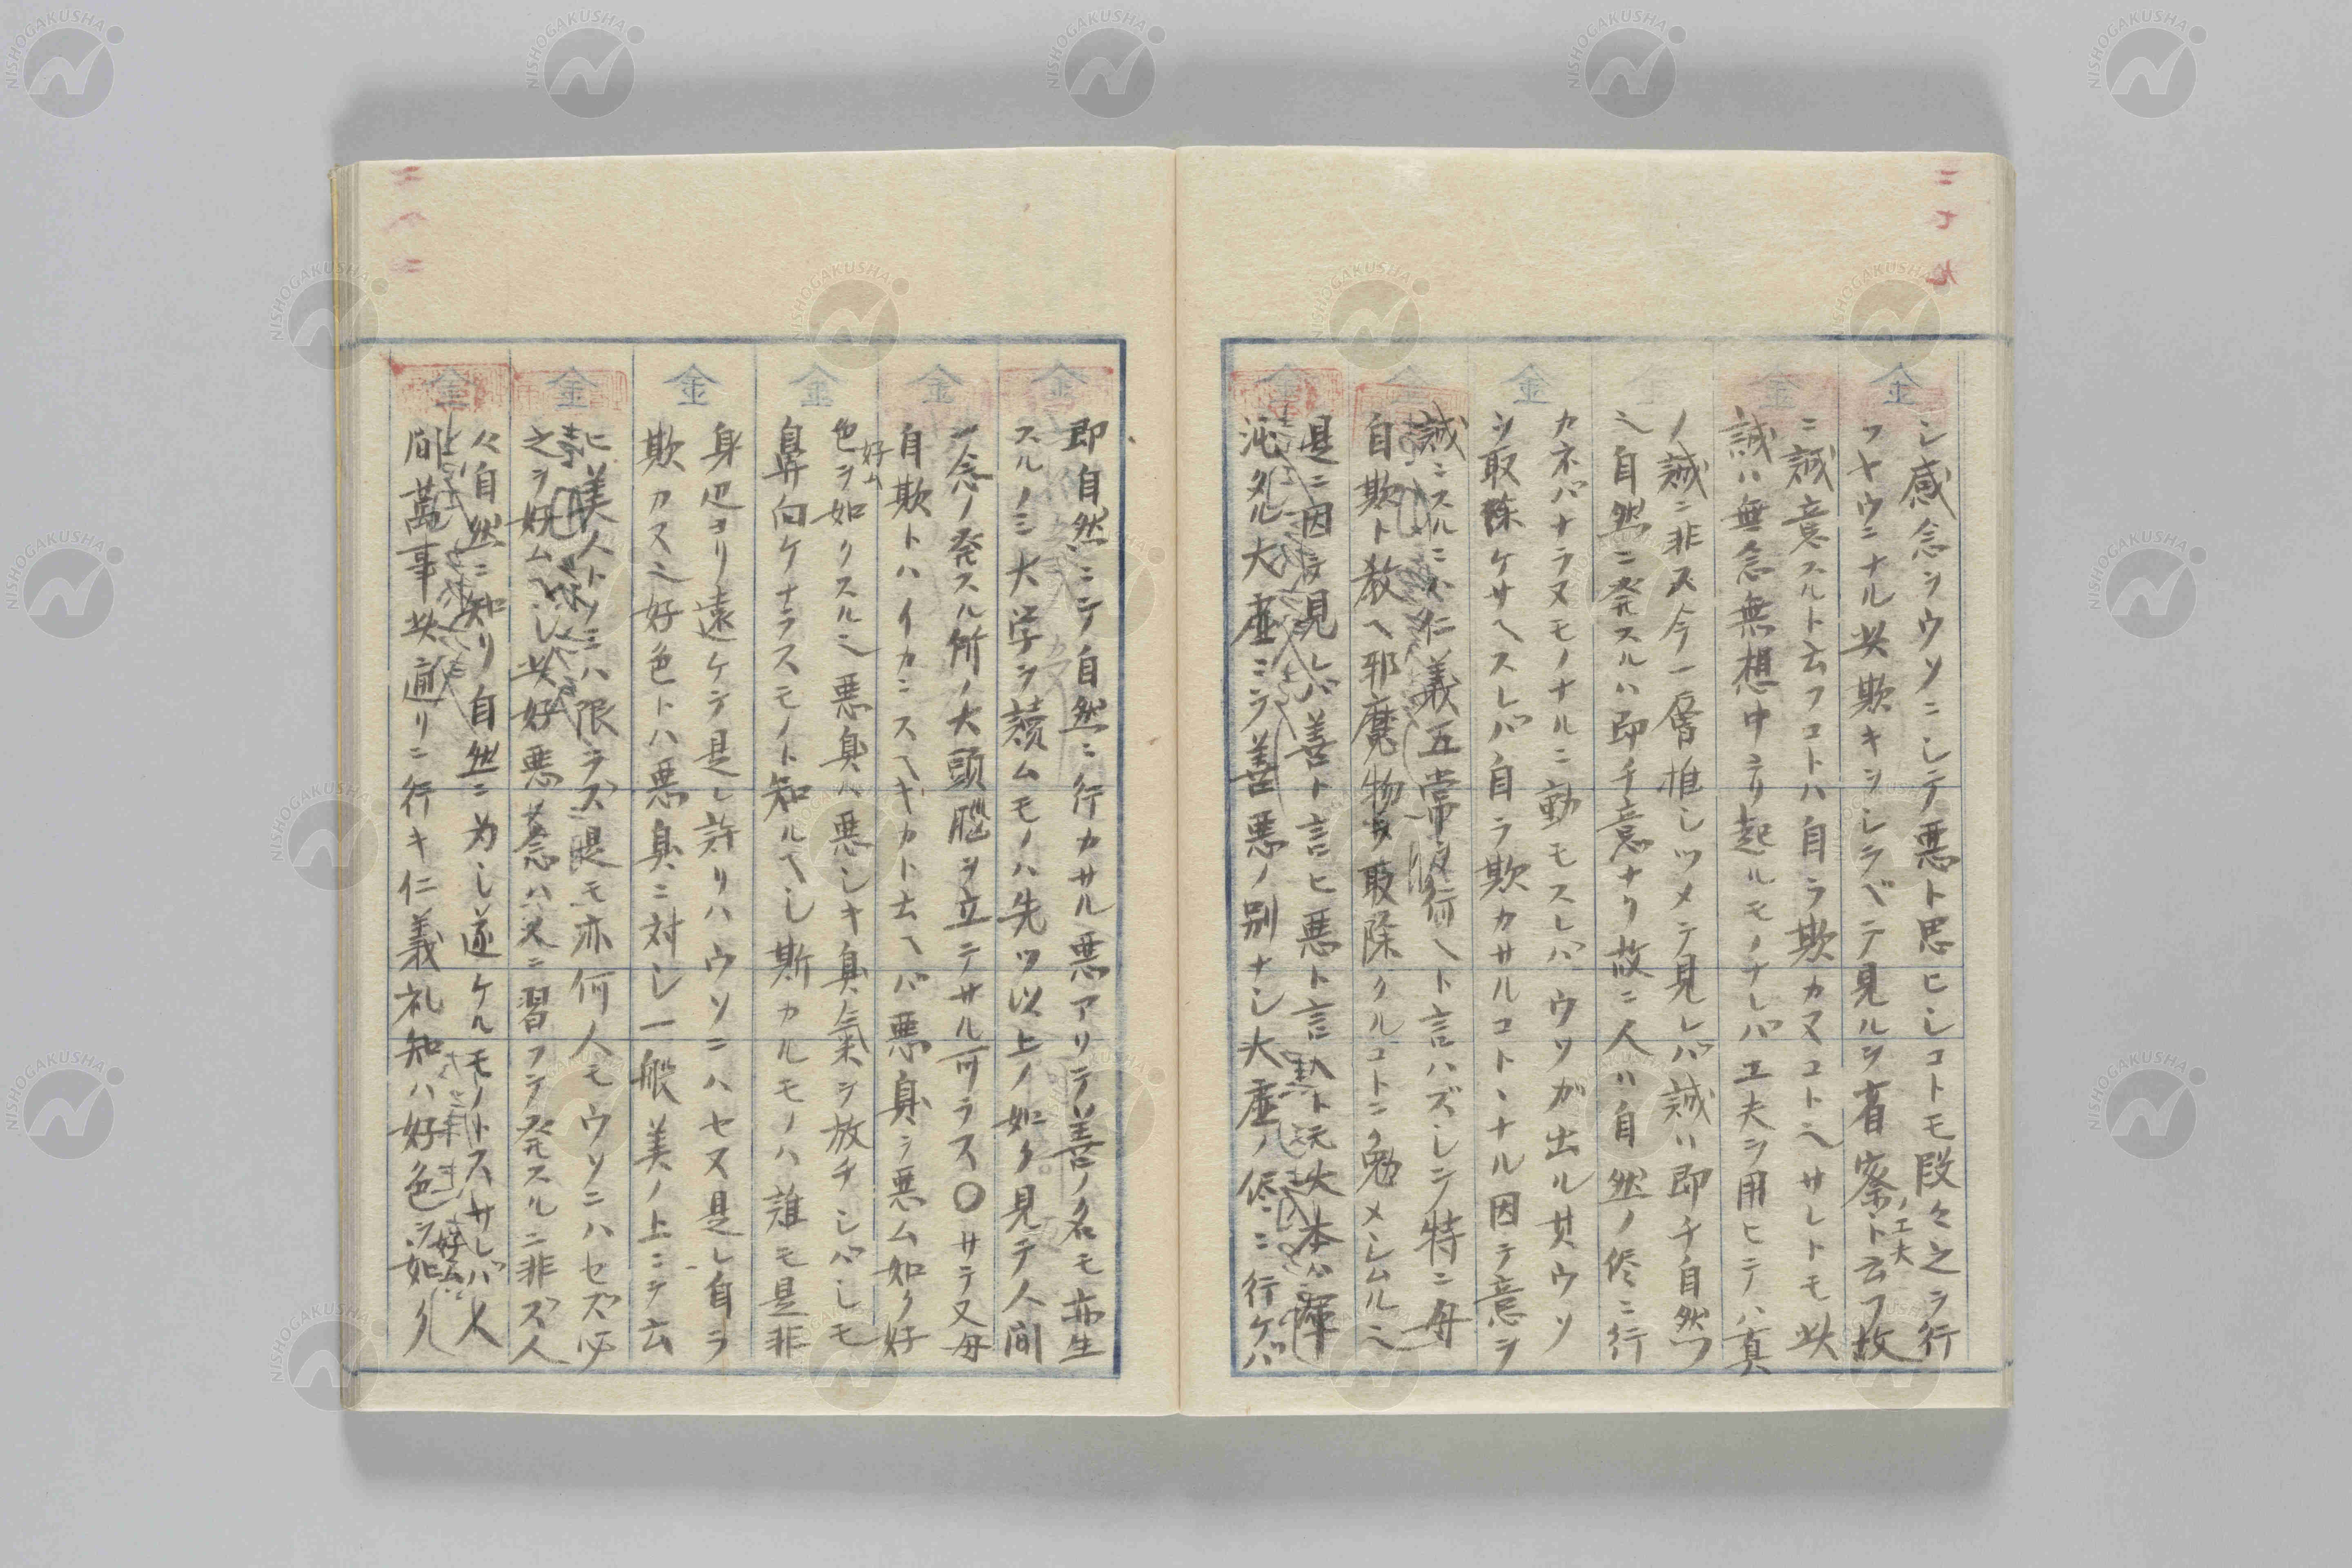 二七九
シ感念ヲウソニシテ悪ト思ヒシコトモ段々之ヲ行
フヤウニナル此欺キヲシラベテ見ルヲ省察ノ工夫ト云フ故
ニ誠意スルト云フコトハ自ラ欺カヌコト也サレトモ此
誠ハ無念無想中ヨリ起ルモノナレバ工夫ヲ用ヒテハ真
ノ誠ニ非ス今一層推シツメテ見レバ誠ハ即チ自然ツ
也自然ニ発スルハ即チ意ナリ故ニ人ハ自然ノ侭ニ行
カネバナラヌモノナルニ動モスレバウソガ出ル其ウソ
ヲ取除ケサヘスレバ自ラ欺カサルコトヽナル因テ意ヲ
誠ニスルニハ仁義五常ヲ行ヘト言ハズシテ特ニ毋
自欺ト教ヘ邪魔物ヲ取除クルコトヲ勉メシムル也
是ニ因テ見レバ善ト言ヒ悪ト言ト元大本ハ渾
沌タル大虚ニテ善悪ノ別ナシ大虚ノ侭ニ行ケバ
即自然ニテ自然ニ行カサル悪アリテ善ノ名モ亦生
スルノミ大学ヲ読ムモノハ先ツ以上ノ如ク見テ人間
一念ノ発スル所ノ大頭脳ヲ立テサル可ラス〇サテ又毋
自欺トハイカニスヘギカト云ヘバ悪臭ヲ悪ム如ク好
色ヲ好ム如クスル也悪臭ハ悪シキ臭氣ヲ放チシバシモ
鼻向ケナラスモノト知ルヘシ斯カルモノハ誰モ是非
身辺ヨリ遠ケテ是レ許リハウソニハセヌ是レ自ラ
欺カス也好色トハ悪臭ニ対シ一般美ノ上ニテ云
ヒ美人トノミハ限ラズ是モ亦何人モウソニハセズ必
之ヲ好ムヘシ此好悪ノ念ハ人ニ習フテ発スルニ非ズ人
々自然ニ知リ自然ニ為シ遂ケルモノトスサレバ人
間萬事此通リニ行キ仁義礼知ハ好色ヲ好ム如ク
二八二
金
NISHOGAKUSHA